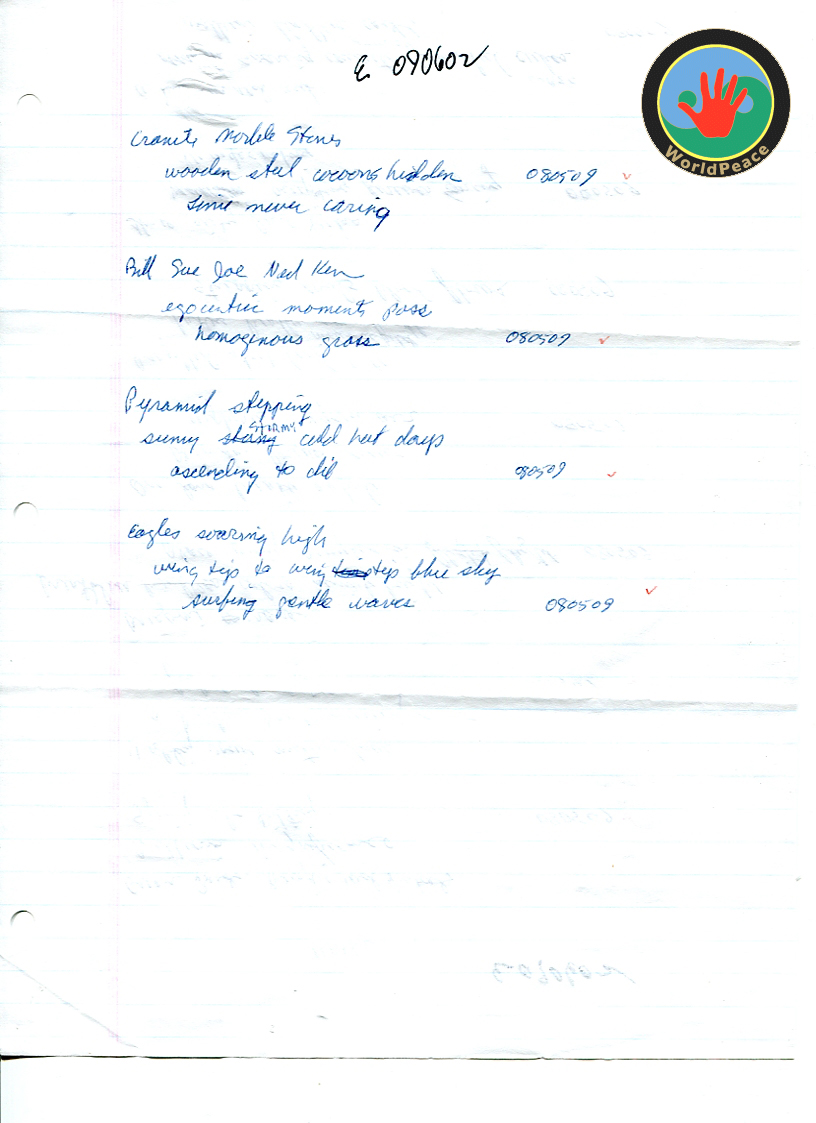 E 090602
WorldPeace
Granite Marble Stones
wooden steel cocoons hidden 080509 ✓
time never caring
Bill Sue Joe Ned Ken
egocentric moments pass
homogenous grass 080509 ✓
Pyramid stepping
sunny STORMY cold hot days
ascending to die 080509 ✓
Eagles soaring high
wing tip to wing tip blue sky
surfing gentle waves 080509 ✓